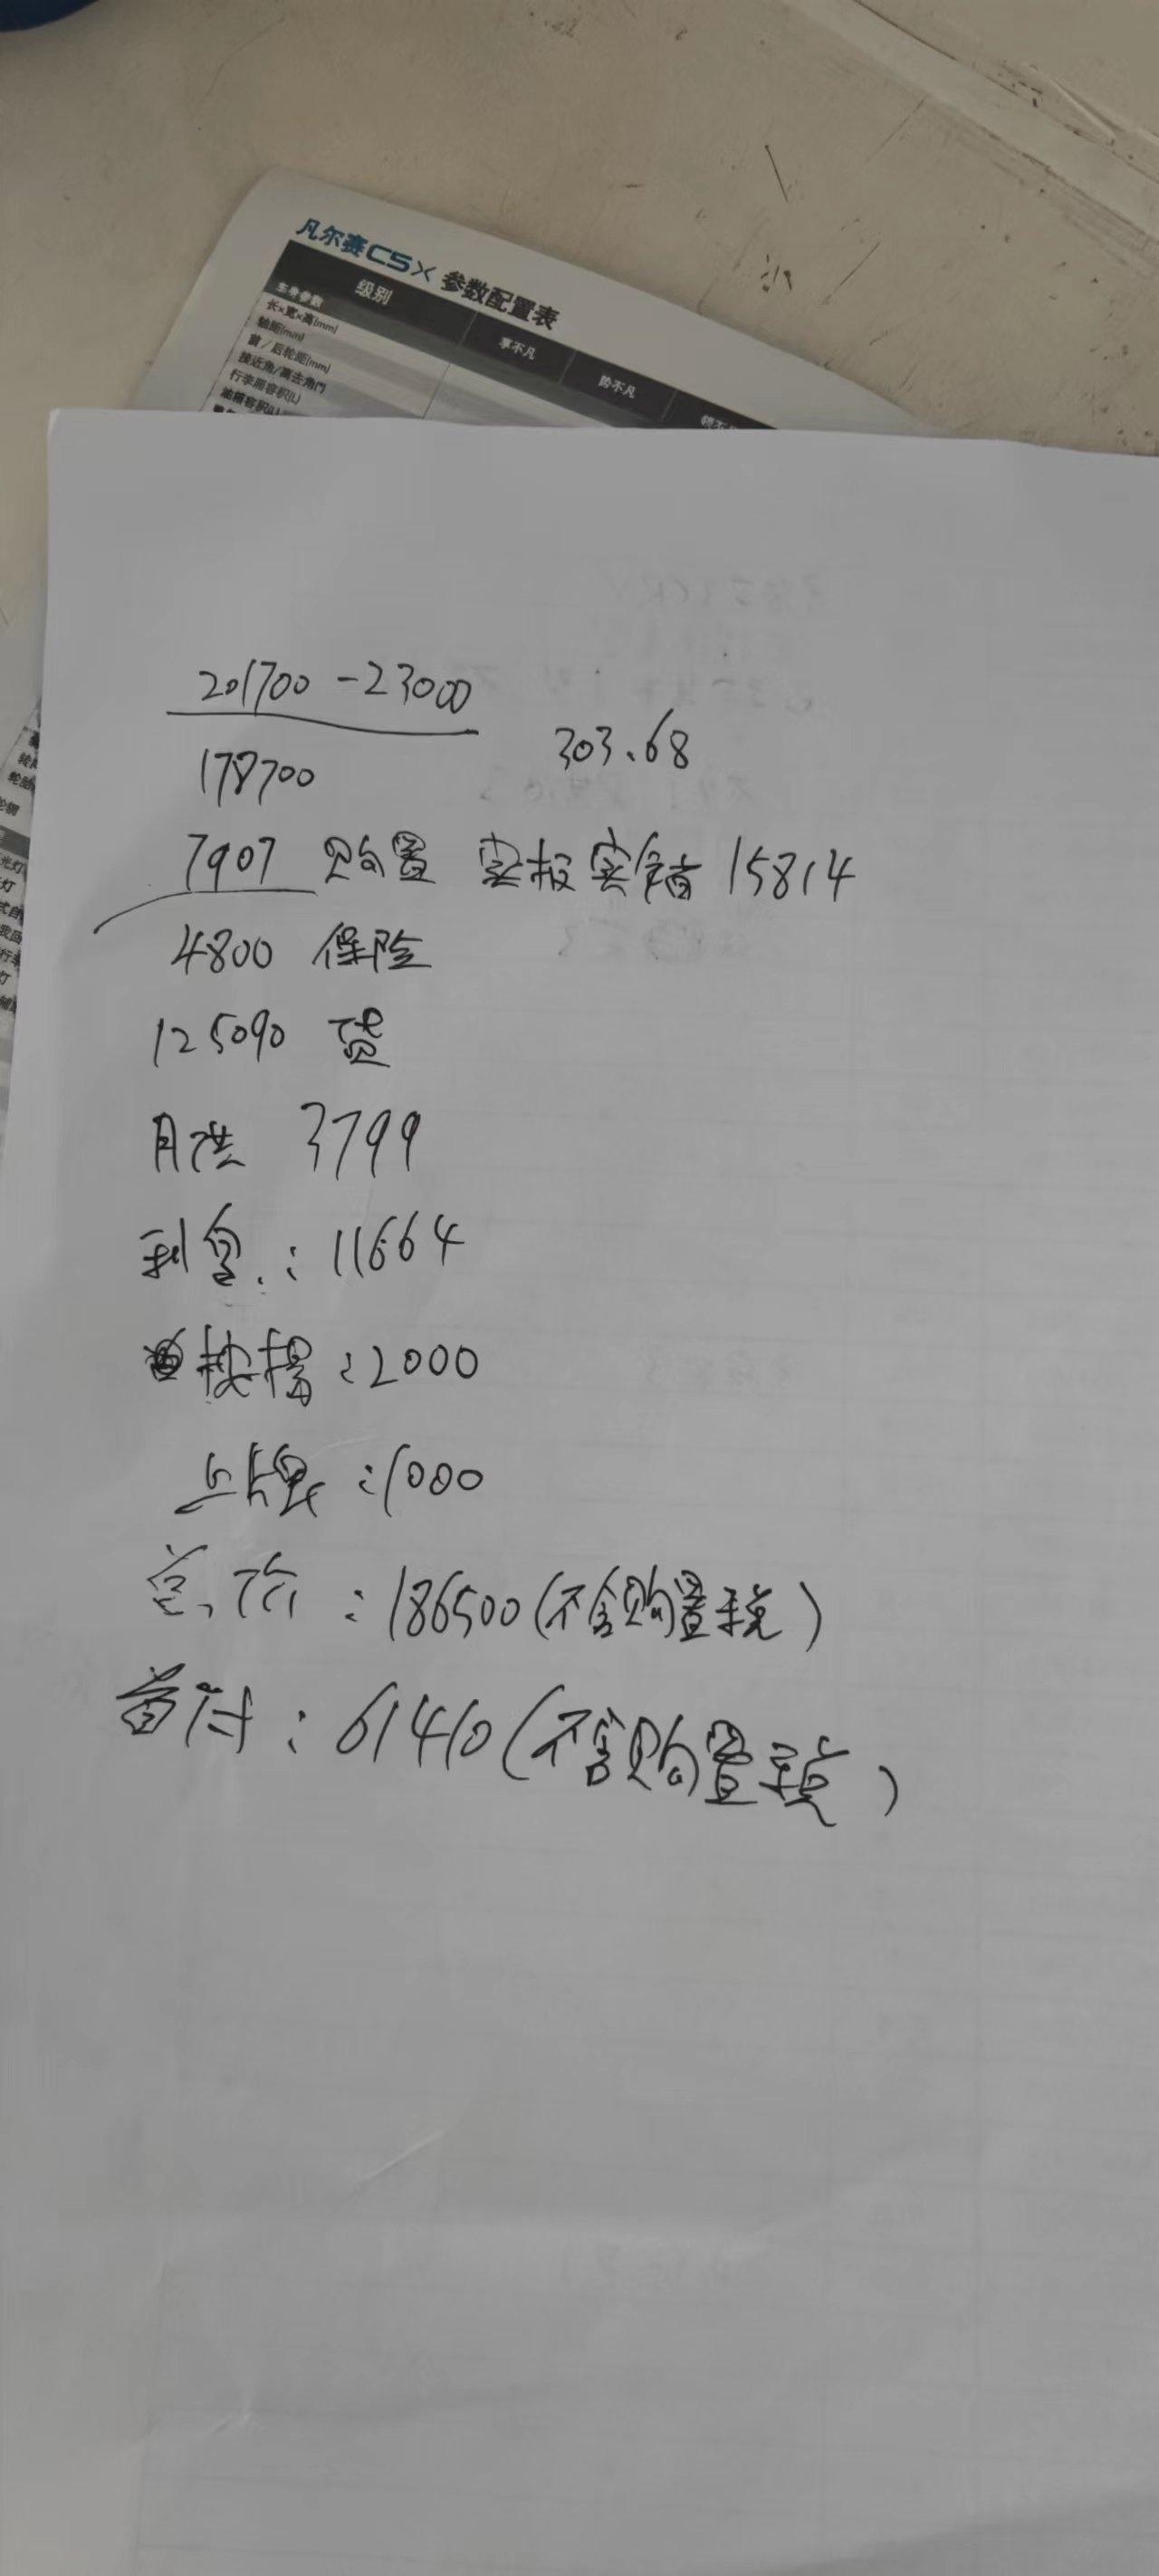 凡尔赛C5X 参数配置表
级别 享不凡 势不凡
车身参数
长×宽×高(mm)
轴距(mm)
前/后轮距(mm)
接近角/离去角(°)
行李厢容积(L)
油箱容积(L)
201700 -23000
178700 303.68
7907 购置 实报实销 15814
4800 保险
125090 贷
月供 3799
利息.: 11664
按揭:2000
上牌:1000
总价:186500(不含购置税)
首付:61410(不含购置税)